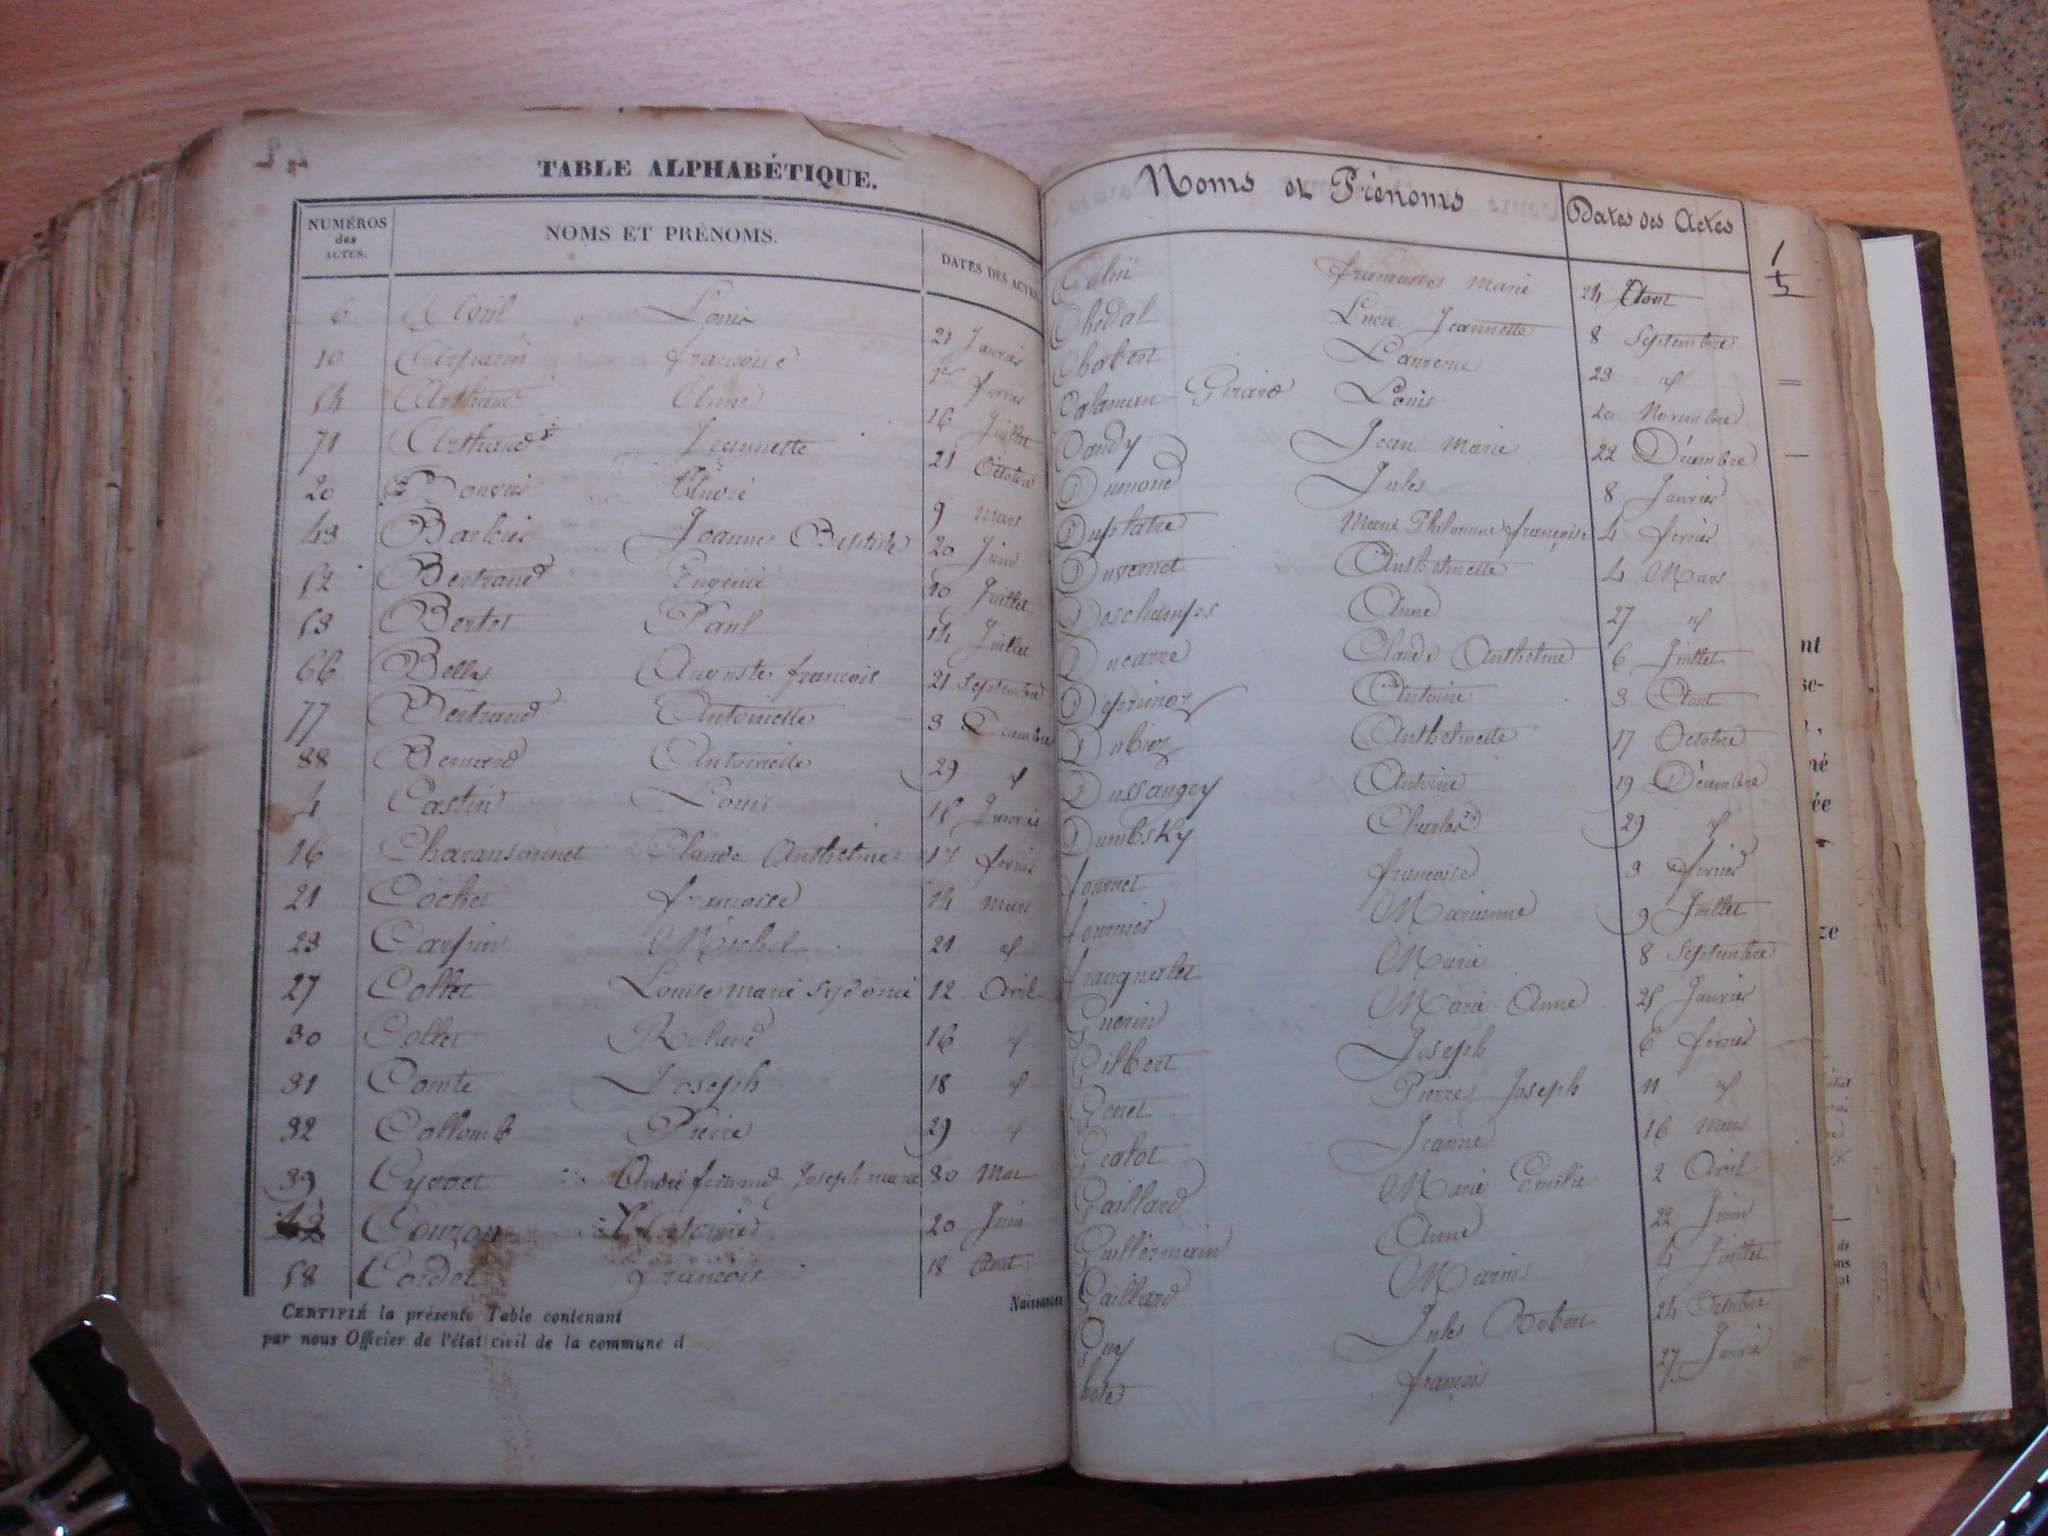 TABLE ALPHABÉTIQUE.
NUMÉROS
des
ACTES.
NOMS ET PRÉNOMS.
DATES DES ACTES
6 Louis 21 Janvier
10 françoise 1er février
54 Arthaud 16 Juillet
71 Arthaud Jeannette 21 Octobre
20 André 9 Mars
43 Barbier Joannes Baptiste 20 Juin
52 Bertrand Eugénie 10 Juillet
53 Bertet Paul 14 Juillet
66 Belly Auguste françois 21 Septembre
77 Bertrand Antoinette 3 Décembre
88 Bernard Antoinette 29 d
4 Castin Louis 15 Janvier
16 Charansonnet Claude Anthelme 17 février
21 Cochet françoise 14 mars
23 Carpin Michel 21 d
27 Collet Louise marie Sydonie 12 Avril
30 Collet Roland 16 d
31 Comte Joseph 18 d
32 Collomb Pierre 29 d
39 Cyvoct André fernand Joseph marie 30 Mai
42 Couzon 20 Juin
58 Cordel françois 18 Aout
Naissances
CERTIFIÉ la présente Table contenant
par nous Officier de l'état civil de la commune d
Noms et Prénoms
Dates des Actes
Colin marie 24 Aout
Chedal Lucie Jeannette 8 Septembre
Chobert Laurence 23 d
Calamun - Girard Louis 20 Novembre
Dandy Jean Marie 22 Décembre
Dumond Jules 8 Janvier
Duplatre Marie Philomine françoise 4 février
Duvernet Anthelmette 4 Mars
Deschamps Anne 27 d
Ducarre Claude Anthelme 6 Juillet
Desprimoz Antoine 3 Aout
Dubiez Anthelmette 17 Octobre
Dussangey Antoine 19 Décembre
Dumbsky Charles 29 d
fournet françoise 3 février
fournier Marianne 9 Juillet
franquelet Marie 8 Septembre
Guerin Marie-Anne 25 Janvier
Gilbert Joseph 6 février
Genet Pierre Joseph 11 d
Gealot Jeanne 16 Mars
Gaillard Marie Emilie 2 Avril
Guillermain Anne 22 Juin
Gaillard Marius 4 Juillet
Guy Jules Robert 24 Octobre
françois 27 Janvier